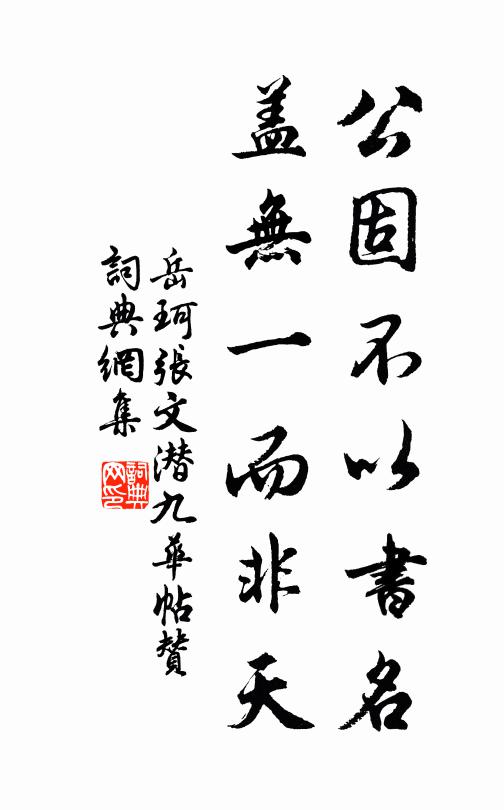 公固不以書名
盖無一而非天
岳珂張文潜九華帖贊
詞典網集
詞典网印